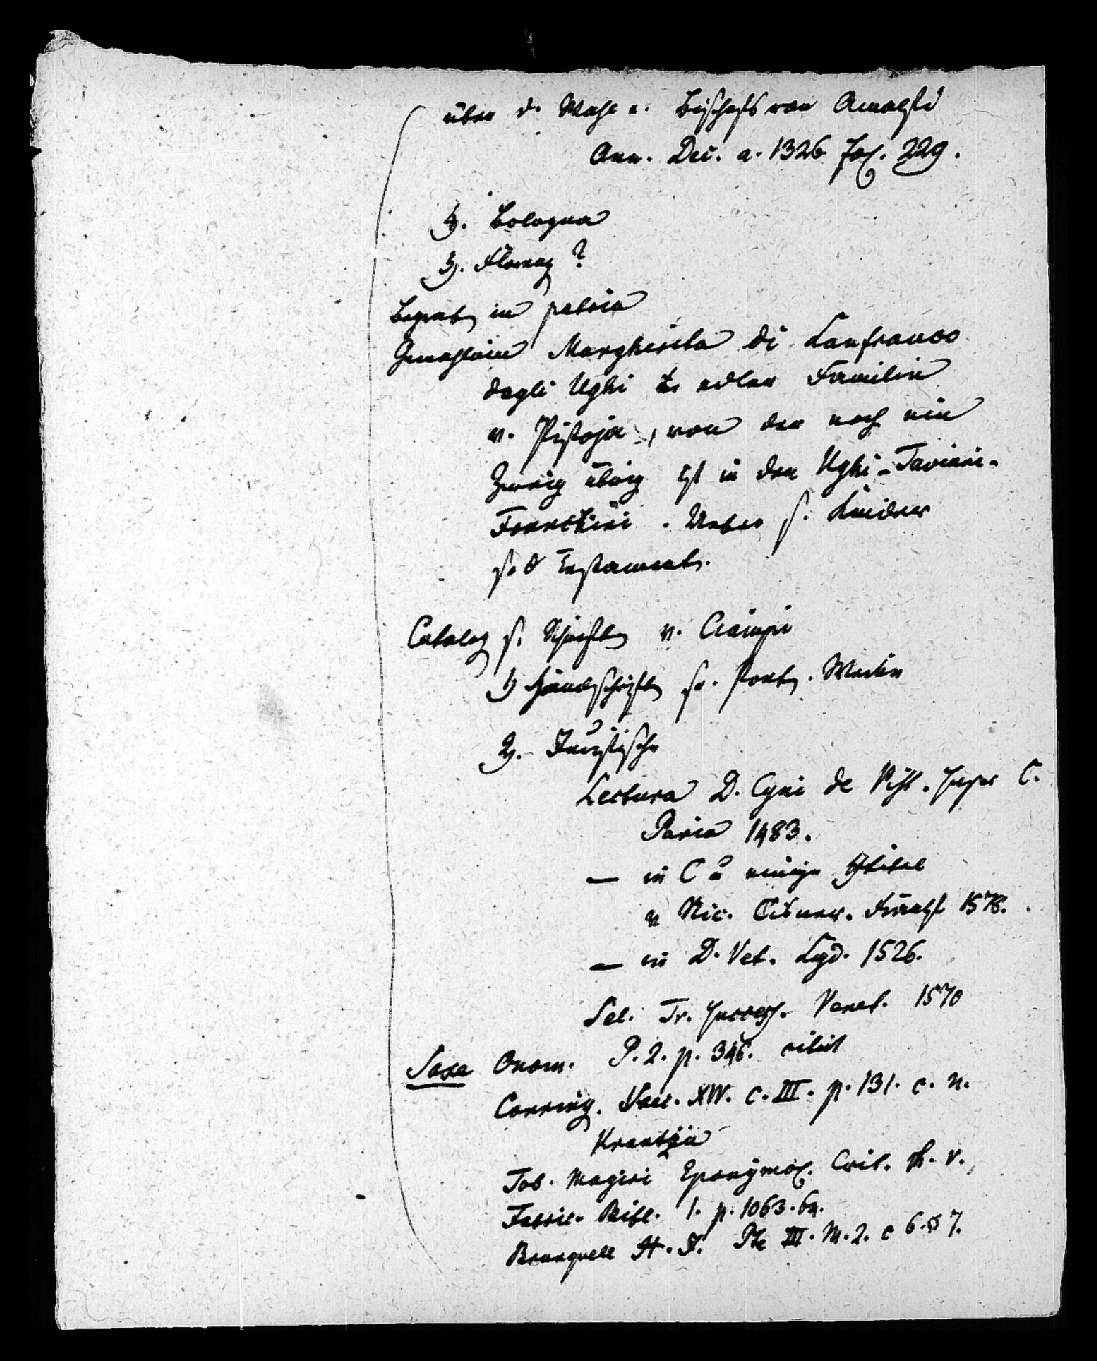 über d. Wahl e. Bischofs von Amalfi
Ann. Dec. a. 1326 fol. 229.
4). Bologna
5). Florenz?
Begrab. in patria
Gemahlin Margherita di Lanfranco
degli Ughi edler Familie
v. Pistoja, von der noch ein
Zweig übrig ist in den Ughi-Tavieri-
Forteschi. Ueber s. Kinder
s. d Testament.
Catalog s. Schriften v. Ciampi
1) Handschriften sr. Poet. Werke
2). Juristische
Lectura D. Cyni de Pist. super C.
Pavia 1483.
— in C u einige Titel
v Nic. Cisner. Frankf 1578.
— in D. Vet. Lgd. 1526.
Sel. Tr. success. Venet. 1570
Saxe Onom. P. 2. p. 346. citirt
Conring. Saec. XIV. c. III. p. 131. c. n.
Krantzii
Tob. Magiri Eponymol. Crit. h. v.
Fabric. Bibl. 1. p. 1063. 64.
Brunquell H. J. Pte III. M. 2. c 6. § 7.